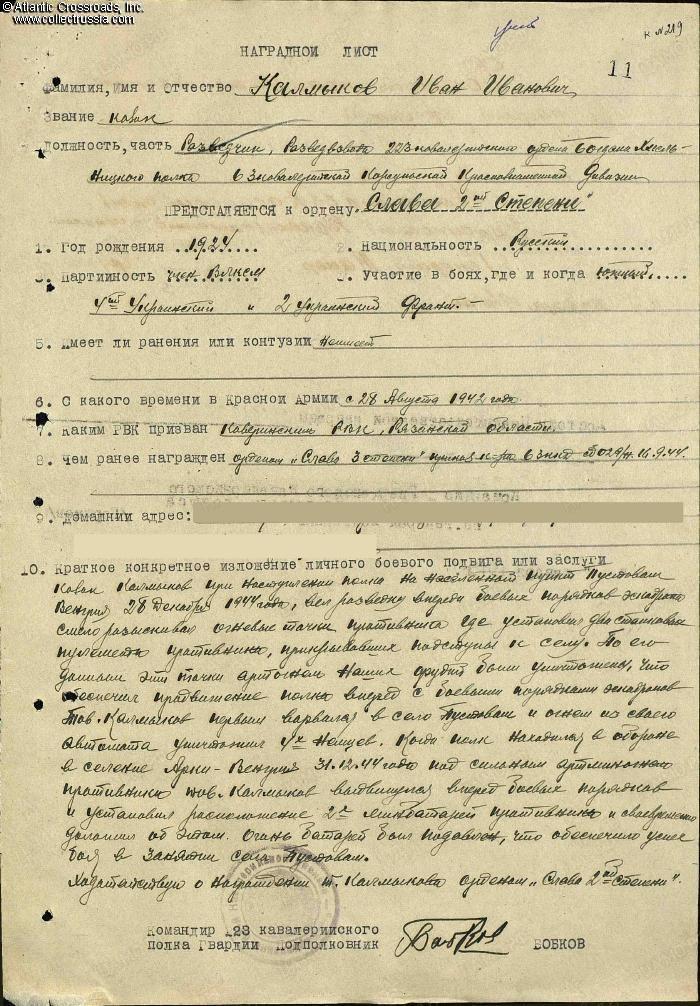 © Atlantic Crossroads, Inc.
www.collectrussia.com
к №219
НАГРАДНОЙ ЛИСТ
11
Фамилия, Имя и Отчество Калмыков Иван Иванович
Звание казак
Должность, часть Разведчик, Разведвзвода 223 кавалерийского ордена Богдана Хмель-
ницкого полка 6 кавалерийской Краснознаменной Дивизии
ПРЕДСТАЛЯЕТСЯ к ордену „Слава 2ой Степени"
1. Год рождения 1924 2. Национальность Русский
3. Партийность член ВЛКСМ . Участие в боях, где и когда Южный
4ый Украинский и 2 Украинский Фронт.-
5. Имеет ли ранения или контузии Не имеет
6. С какого времени в Красной Армии с 28 Августа 1942 года
7. Каким РВК призван РВК, Рязанской области.
8. чем ранее награжден орденом „Слава 3 степени" приказ 16.9.44.
9. домашний адрес:
10. Краткое конкретное изложение личного боевого подвига или заслуги
Казак Калмыков при наступлении полка на населенный пункт Пустовам
Венгрия 28 Декабря 1944 года, вел разведку впереди боевых порядков эскадрона
смело разыскивал огневые точки противника где установил два станковых
пулемета противника, прикрывавших подступы к селу. По его
данным эти точки артогнем наших орудий были уничтожены, что
обеспечило продвижение полка вперед с боевыми порядками эскадронов
Тов. Калмыков первым ворвался в село Пустовам и огнем из своего
автомата уничтожил 4х Немцев. Когда полк находился в обороне
в селение Арки-Венгрия 31.12.44 года под сильным артминогнем
противника тов. Калмыков выдвинулся вперед боевых порядков
и установил расположение 2х минбатарей противника и своевременно
доложил об этом. Огонь батарей был подавлен, что обеспечило успех
боя в занятии села Пустовам.
Ходатайствую о награждении т. Калмыкова орденом „Слава 2ой Степени".
Командир 223 кавалерийского
полка Гвардии подполковник Бобков БОБКОВ